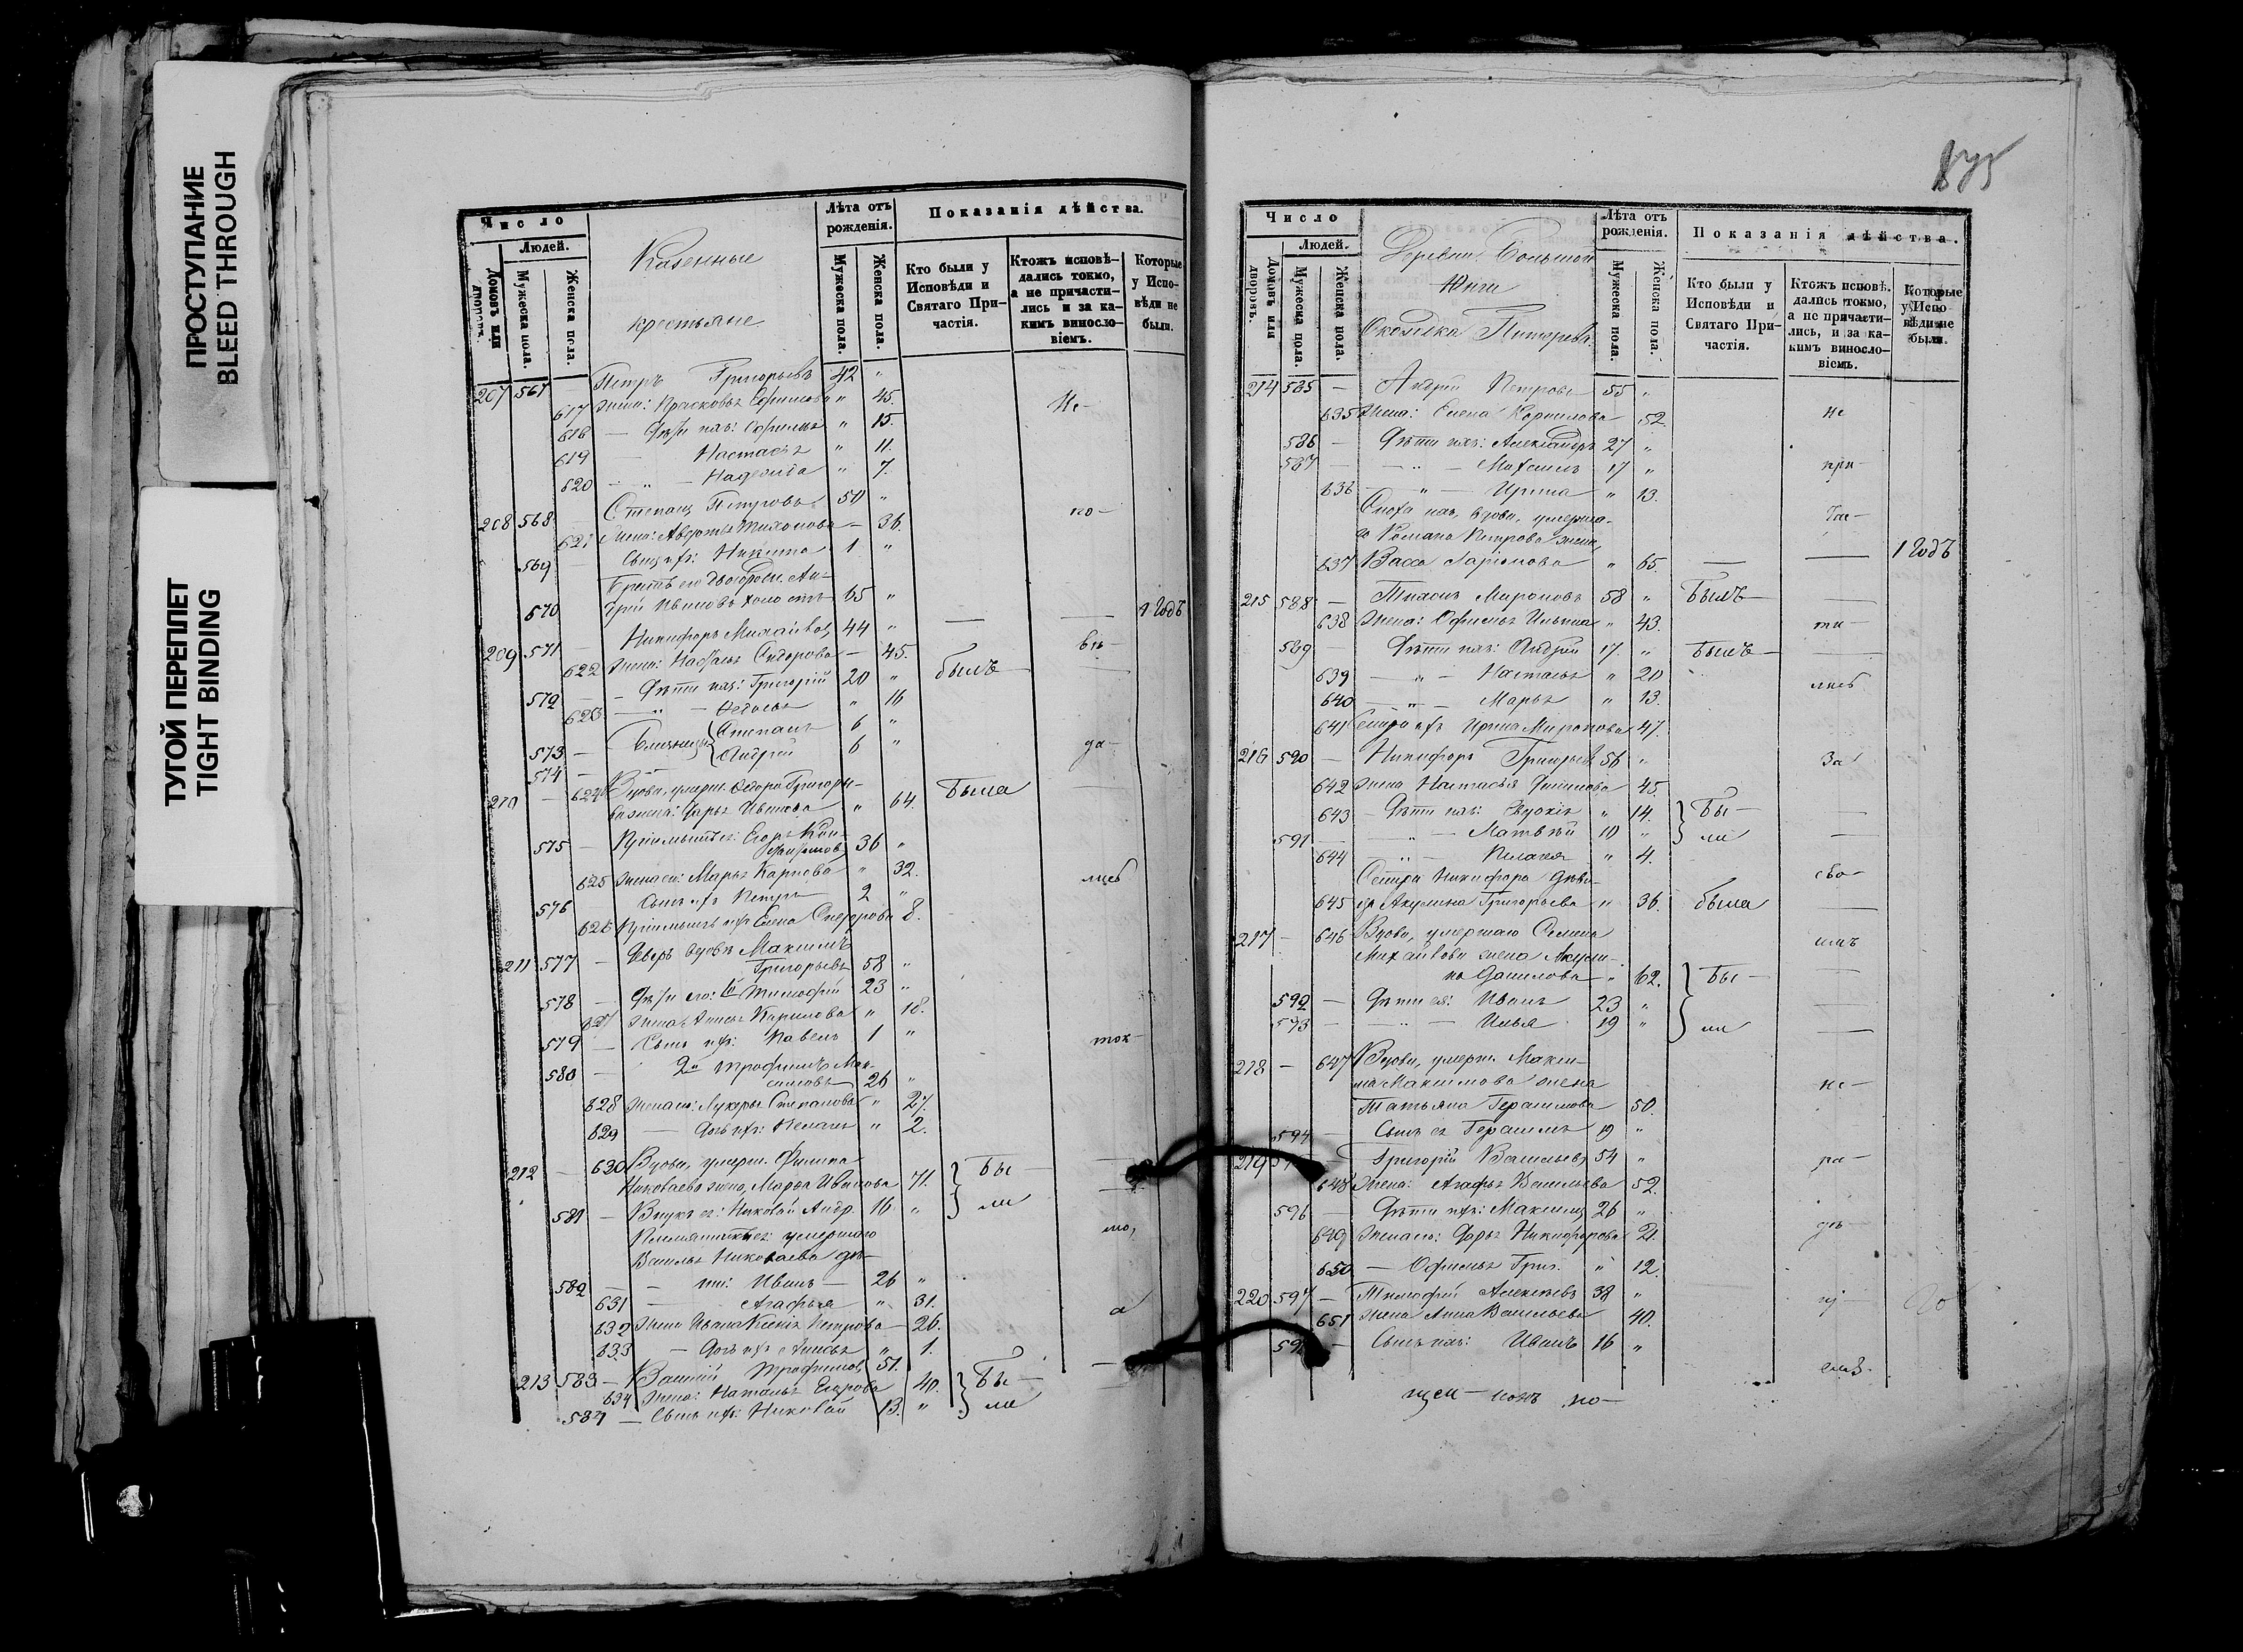 ПРОСТУПАНИЕ
BLEED THROUGH
ТУГОЙ ПЕРЕПЛЕТ
TIGHT BINDING
Число
Людей.
Домовъ или дворовъ.
Мужеска пола.
Женска пола.
Казенные
крестьяне
Лѣта отъ рожденія.
Мужеска пола.
Женска пола.
Показанія дѣйства.
Кто были у Исповѣди и Святаго При-частія.
Ктожъ исповѣ-дались токмо, а не причасти-лись и за ка-кимъ винослo-віемъ.
Которые у Испо-вѣди не были.
207 567 Петръ Григорьевъ 42 "
617 Жена: Прасковья " 45. Не-
618 " 15.
619 Настасія " 11.
620 - " - Надежда " 7.
208 568 Степанъ Петровъ 50 " по-
621 Жена: Авдотья Тихонова - 36.
569 Сынъ ихъ: Никита 1. "
Братъ его двоюродн. Ан-
570 дрей Ивановъ холостъ 65 " 1 Годъ
209 571 Никифоръ Михайловъ 44 " — — вѣ-
622 Жена: Наталья Сидорова - 45.
572 - Дѣти ихъ: Григорій 20 " былъ —
623 - " - " 16
573 - Близнецы { Степанъ 6 "
574 - Андрей 6 " да-
210 - 624 Вдова, умерш. Ѳедора Григорь-
ва жена: Дарья Иванова " 64. Была
575 - Егоръ 36 "
625 Жена его: Марья Карпова " 32. лись
576 - Сынъ ихъ Петръ 2 "
626 Елена 8.
211 577 - Деверь вдовы Максимъ
Григорьевъ 58 "
578 - Дѣти его: Тимофей 23 "
627 Жена: Анисья Кирилова " 18.
579 - Сынъ ихъ: Павелъ 1 " ток-
580 - 2й Трофимъ Мак-
симовъ 26 "
628 Жена его: Лукерья Степанова " 27.
629 - Дочь ихъ: Пелагея " 2.
212 - 630 Вдова, умерш. Филипа
Николаева жена, Марья Иванова 71. } Бы —
581 - Внукъ ея: Николай Андр. 16 " } ли
умершаго мо,
Василья Николаева дѣ-
582 - - ти: Иванъ 26 "
631 - Агафья " 31. а
632 Жена Ивана Ксенія Петрова 26.
633 - Дочь ихъ Анисья " 1.
213 583 - Василій Трофимовъ 51. —
634 Жена: Наталья Егорова 40. } Бы —
584 - Сынъ ихъ: Николай 13. " } ли
875
Число
Людей.
Домовъ или дворовъ.
Мужеска пола.
Женска пола.
Деревни, Большой
Юги
Околодка Питорева
Лѣта отъ рожденія.
Мужеска пола.
Женска пола.
Показанія дѣйства.
Кто были у Исповѣди и Святаго При-частія.
Ктожъ исповѣ-дались токмо, а не причасти-лись, и за ка-кимъ винослo-віемъ.
Которые у Испо-вѣди не были.
214 585 - Андрей Петровъ 55 "
635 Жена: Елена Корнилова 52. не
586 - Дѣти ихъ: Александръ 27 "
587 - - " - 17 " при-
636 - " - Ирина " 13.
Сноха ихъ, вдова, умерша- час-
го Романа Петрова жена,
637 Васса Ларіонова " 65. — — 1 Годъ
215 588 - Миронов 58 " Былъ — —
638 Жена: Офимья Ильина " 43. ти-
589 Дѣти ихъ: Андрей 17. " Былъ — —
639 - " - Настасья " 20 лись
640 - " - Марья " 13.
641 Сестра ихъ Ирина Миронова 47.
216 590 - Никифоръ Григорьевъ 56 " За
642 Жена Настасья 45.
643 - Дѣти ихъ: Евдокія " 14. } Бы — —
591 - " - Матвѣй 10 " } ли —
644 - " - Пелагея " 4.
Сестра Никифора дѣви- сво-
645 ца Акулина Григорьева " 36. была —
217 - 646 Вдова, умершаго Семена имъ
Михайлова жена Акули-
на Данилова " 62. } Бы — —
592 - Дѣти ея: Иванъ 23 " —
593 - - " - Илья 19 " } ли —
218 - 647 Вдова, умерш. Макси-
ма Максимова жена не-
Татьяна Герасимова 50.
594 - Сынъ ея Герасимъ 19 "
219 Григорій Васильевъ 54 " ра-
648 Жена: Агафья Васильева 52.
596 - Дѣти ихъ: Максимъ 26 "
649 Жена его: Дарья Никифорова 21. дѣ-
650 - Офимья Григ. " 12.
220 597 - Тимофей Алексѣевъ 38 "
651 Жена Анна Васильева 40.
Сынъ ихъ: Иванъ 16 "